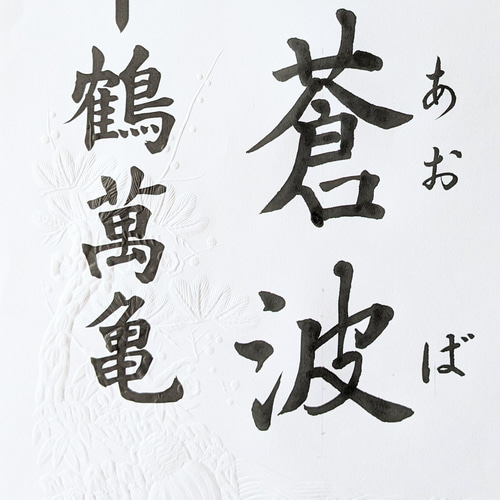 あおば
蒼波
鶴萬亀